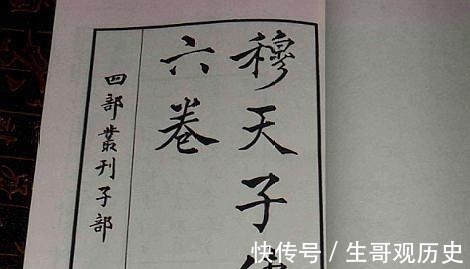 穆天子傳
六卷
四部叢刊子部
快传号/生哥观历史